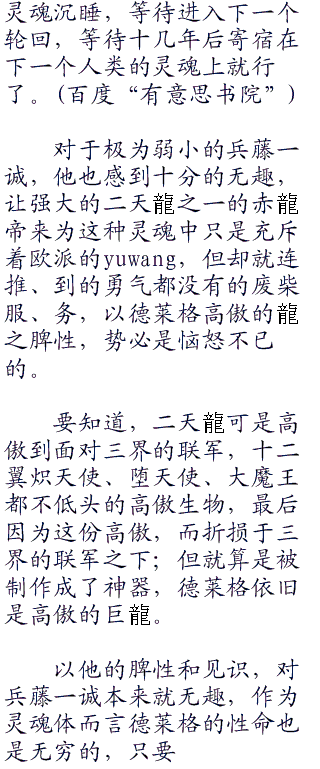 灵魂沉睡，等待进入下一个
轮回，等待十几年后寄宿在
下一个人类的灵魂上就行
了。(百度“有意思书院”)
对于极为弱小的兵藤一
诚，他也感到十分的无趣，
让强大的二天龍之一的赤龍
帝来为这种灵魂中只是充斥
着欧派的yuwang，但却就连
推、到的勇气都没有的废柴
服、务，以德莱格高傲的龍
之脾性，势必是恼怒不已
的。
要知道，二天龍可是高
傲到面对三界的联军，十二
翼炽天使、堕天使、大魔王
都不低头的高傲生物，最后
因为这份高傲，而折损于三
界的联军之下；但就算是被
制作成了神器，德莱格依旧
是高傲的巨龍。
以他的脾性和见识，对
兵藤一诚本来就无趣，作为
灵魂体而言德莱格的性命也
是无穷的，只要